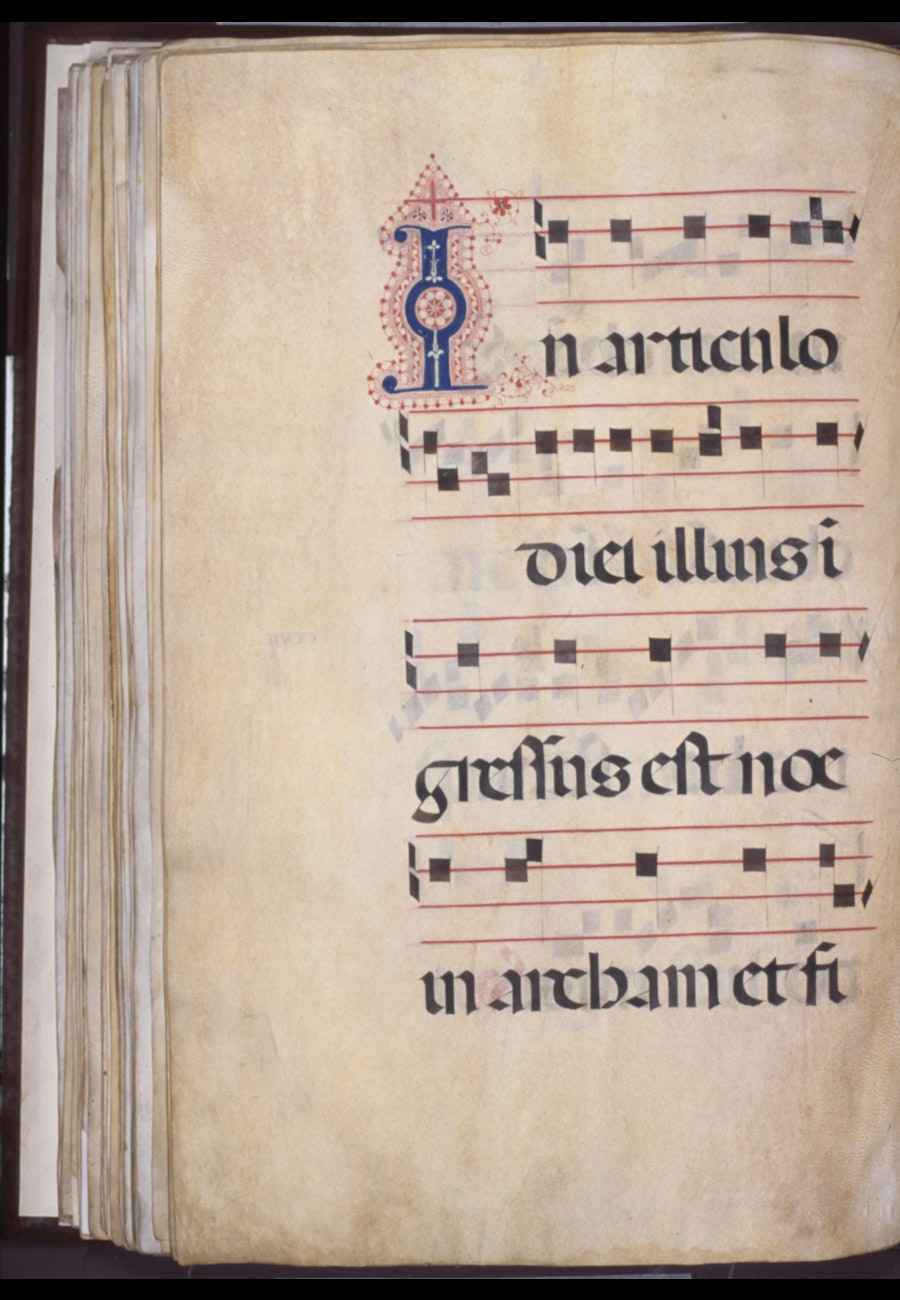 In articulo
diei illius i
gressus est noe
in archam et fi